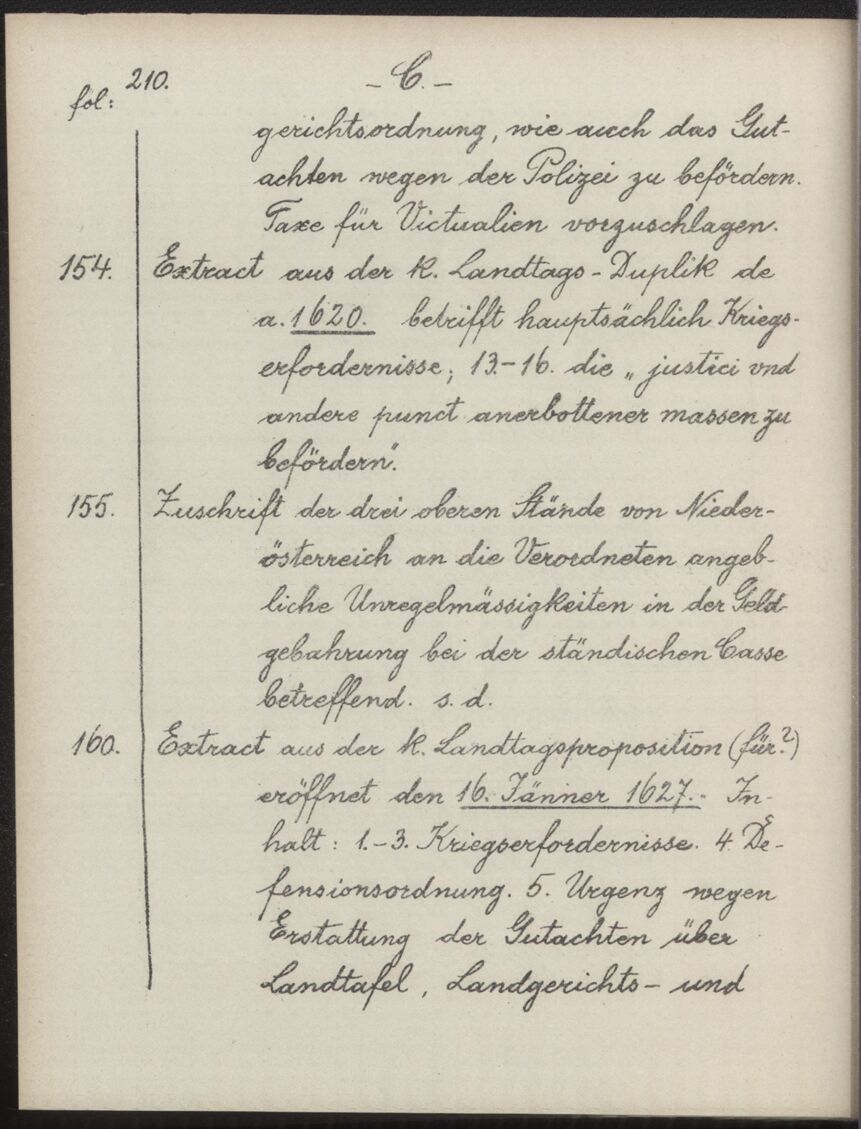 210.
- C. -
fol:
gerichtsordnung, wie auch das Gut-
achten wegen der Polizei zu befördern.
Taxe für Victualien vorzuschlagen.
154. Extract aus der k. Landtags-Duplik de
a. 1620. betrifft hauptsächlich Kriegs-
erfordernisse; 13.-16. die „justici vnd
andere punct anerbottener massen zu
befördern".
155. Zuschrift der drei oberen Stände von Nieder-
österreich an die Verordneten angeb-
liche Unregelmässigkeiten in der Geld-
gebahrung bei der ständischen Casse
betreffend. s. d.
160. Extract aus der k. Landtagsproposition (für?)
eröffnet den 16. Jänner 1627.- In-
halt: 1.-3. Kriegserfordernisse. 4. De-
fensionsordnung. 5. Urgenz wegen
Erstattung der Gutachten über
Landtafel, Landgerichts- und